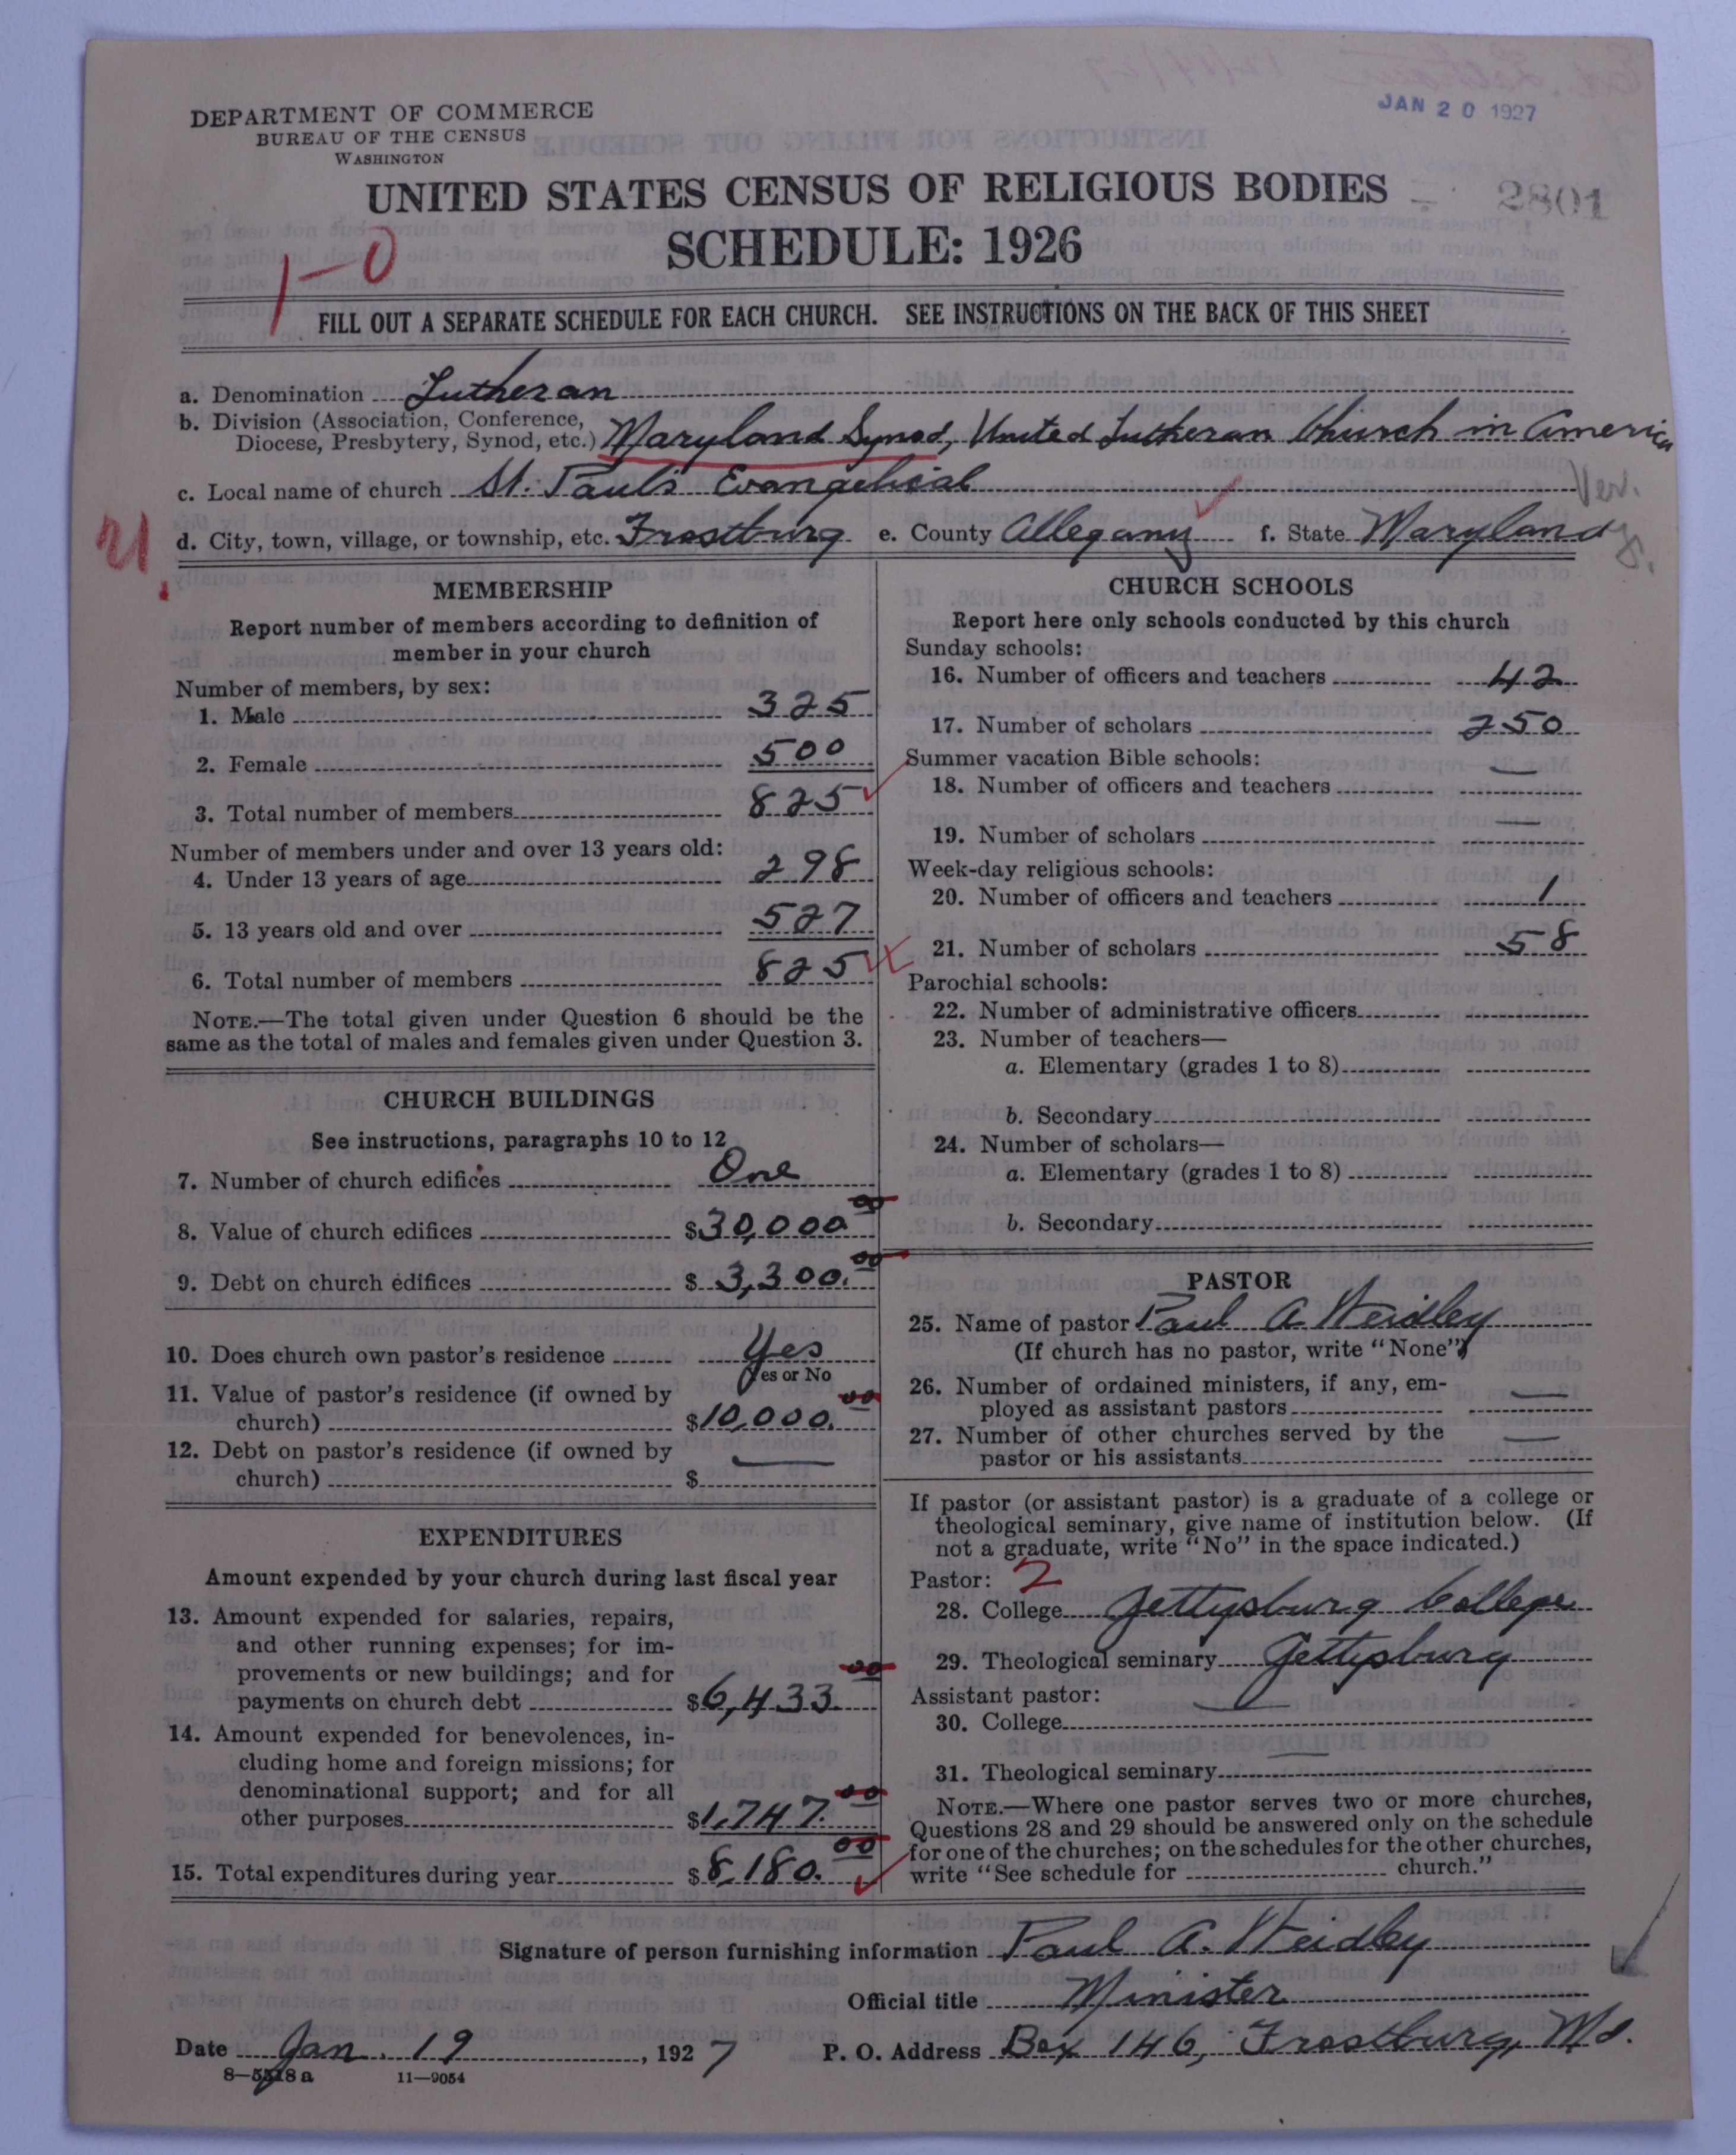 JAN 20 1927
DEPARTMENT OF COMMERCE
BUREAU OF THE CENSUS
WASHINGTON
UNITED STATES CENSUS OF RELIGIOUS BODIES
2801
SCHEDULE: 1926
1-0
FILL OUT A SEPARATE SCHEDULE FOR EACH CHURCH. SEE INSTRUCTIONS ON THE BACK OF THIS SHEET
a. Denomination Lutheran
b. Division (Association, Conference,
Diocese, Presbytery, Synod, etc.) Maryland Synod, United Lutheran Church in America
c. Local name of church St. Paul's Evangelical
Ver.
d. City, town, village, or township, etc. Frostburg e. County Allegany f. State Maryland
MEMBERSHIP
Report number of members according to definition of
member in your church
Number of members, by sex:
1. Male 325
2. Female 500
3. Total number of members 825
Number of members under and over 13 years old:
4. Under 13 years of age 298
5. 13 years old and over 527
6. Total number of members 825
NOTE.—The total given under Question 6 should be the
same as the total of males and females given under Question 3.
CHURCH BUILDINGS
See instructions, paragraphs 10 to 12
7. Number of church edifices One
8. Value of church edifices $30,000.00
9. Debt on church edifices $3,300.00
10. Does church own pastor's residence Yes
Yes or No
11. Value of pastor's residence (if owned by
church) $10,000.00
12. Debt on pastor's residence (if owned by
church) $ —
EXPENDITURES
Amount expended by your church during last fiscal year
13. Amount expended for salaries, repairs,
and other running expenses; for im-
provements or new buildings; and for
payments on church debt $6,433.00
14. Amount expended for benevolences, in-
cluding home and foreign missions; for
denominational support; and for all
other purposes $1,747.00
15. Total expenditures during year $8,180.00
CHURCH SCHOOLS
Report here only schools conducted by this church
Sunday schools:
16. Number of officers and teachers 42
17. Number of scholars 250
Summer vacation Bible schools:
18. Number of officers and teachers —
19. Number of scholars —
Week-day religious schools:
20. Number of officers and teachers 1
21. Number of scholars 58
Parochial schools:
22. Number of administrative officers
23. Number of teachers—
a. Elementary (grades 1 to 8)
b. Secondary
24. Number of scholars—
a. Elementary (grades 1 to 8)
b. Secondary
PASTOR
25. Name of pastor Paul A Weidley
(If church has no pastor, write "None")
26. Number of ordained ministers, if any, em-
ployed as assistant pastors —
27. Number of other churches served by the
pastor or his assistants —
If pastor (or assistant pastor) is a graduate of a college or
theological seminary, give name of institution below. (If
not a graduate, write "No" in the space indicated.)
Pastor: 2
28. College Gettysburg College
29. Theological seminary Gettysburg
Assistant pastor:
30. College —
31. Theological seminary —
NOTE.—Where one pastor serves two or more churches,
Questions 28 and 29 should be answered only on the schedule
for one of the churches; on the schedules for the other churches,
write "See schedule for church."
Signature of person furnishing information Paul A. Weidley
Official title Minister
Date Jan. 19, 1927 P. O. Address Box 146, Frostburg, Md.
11—9054